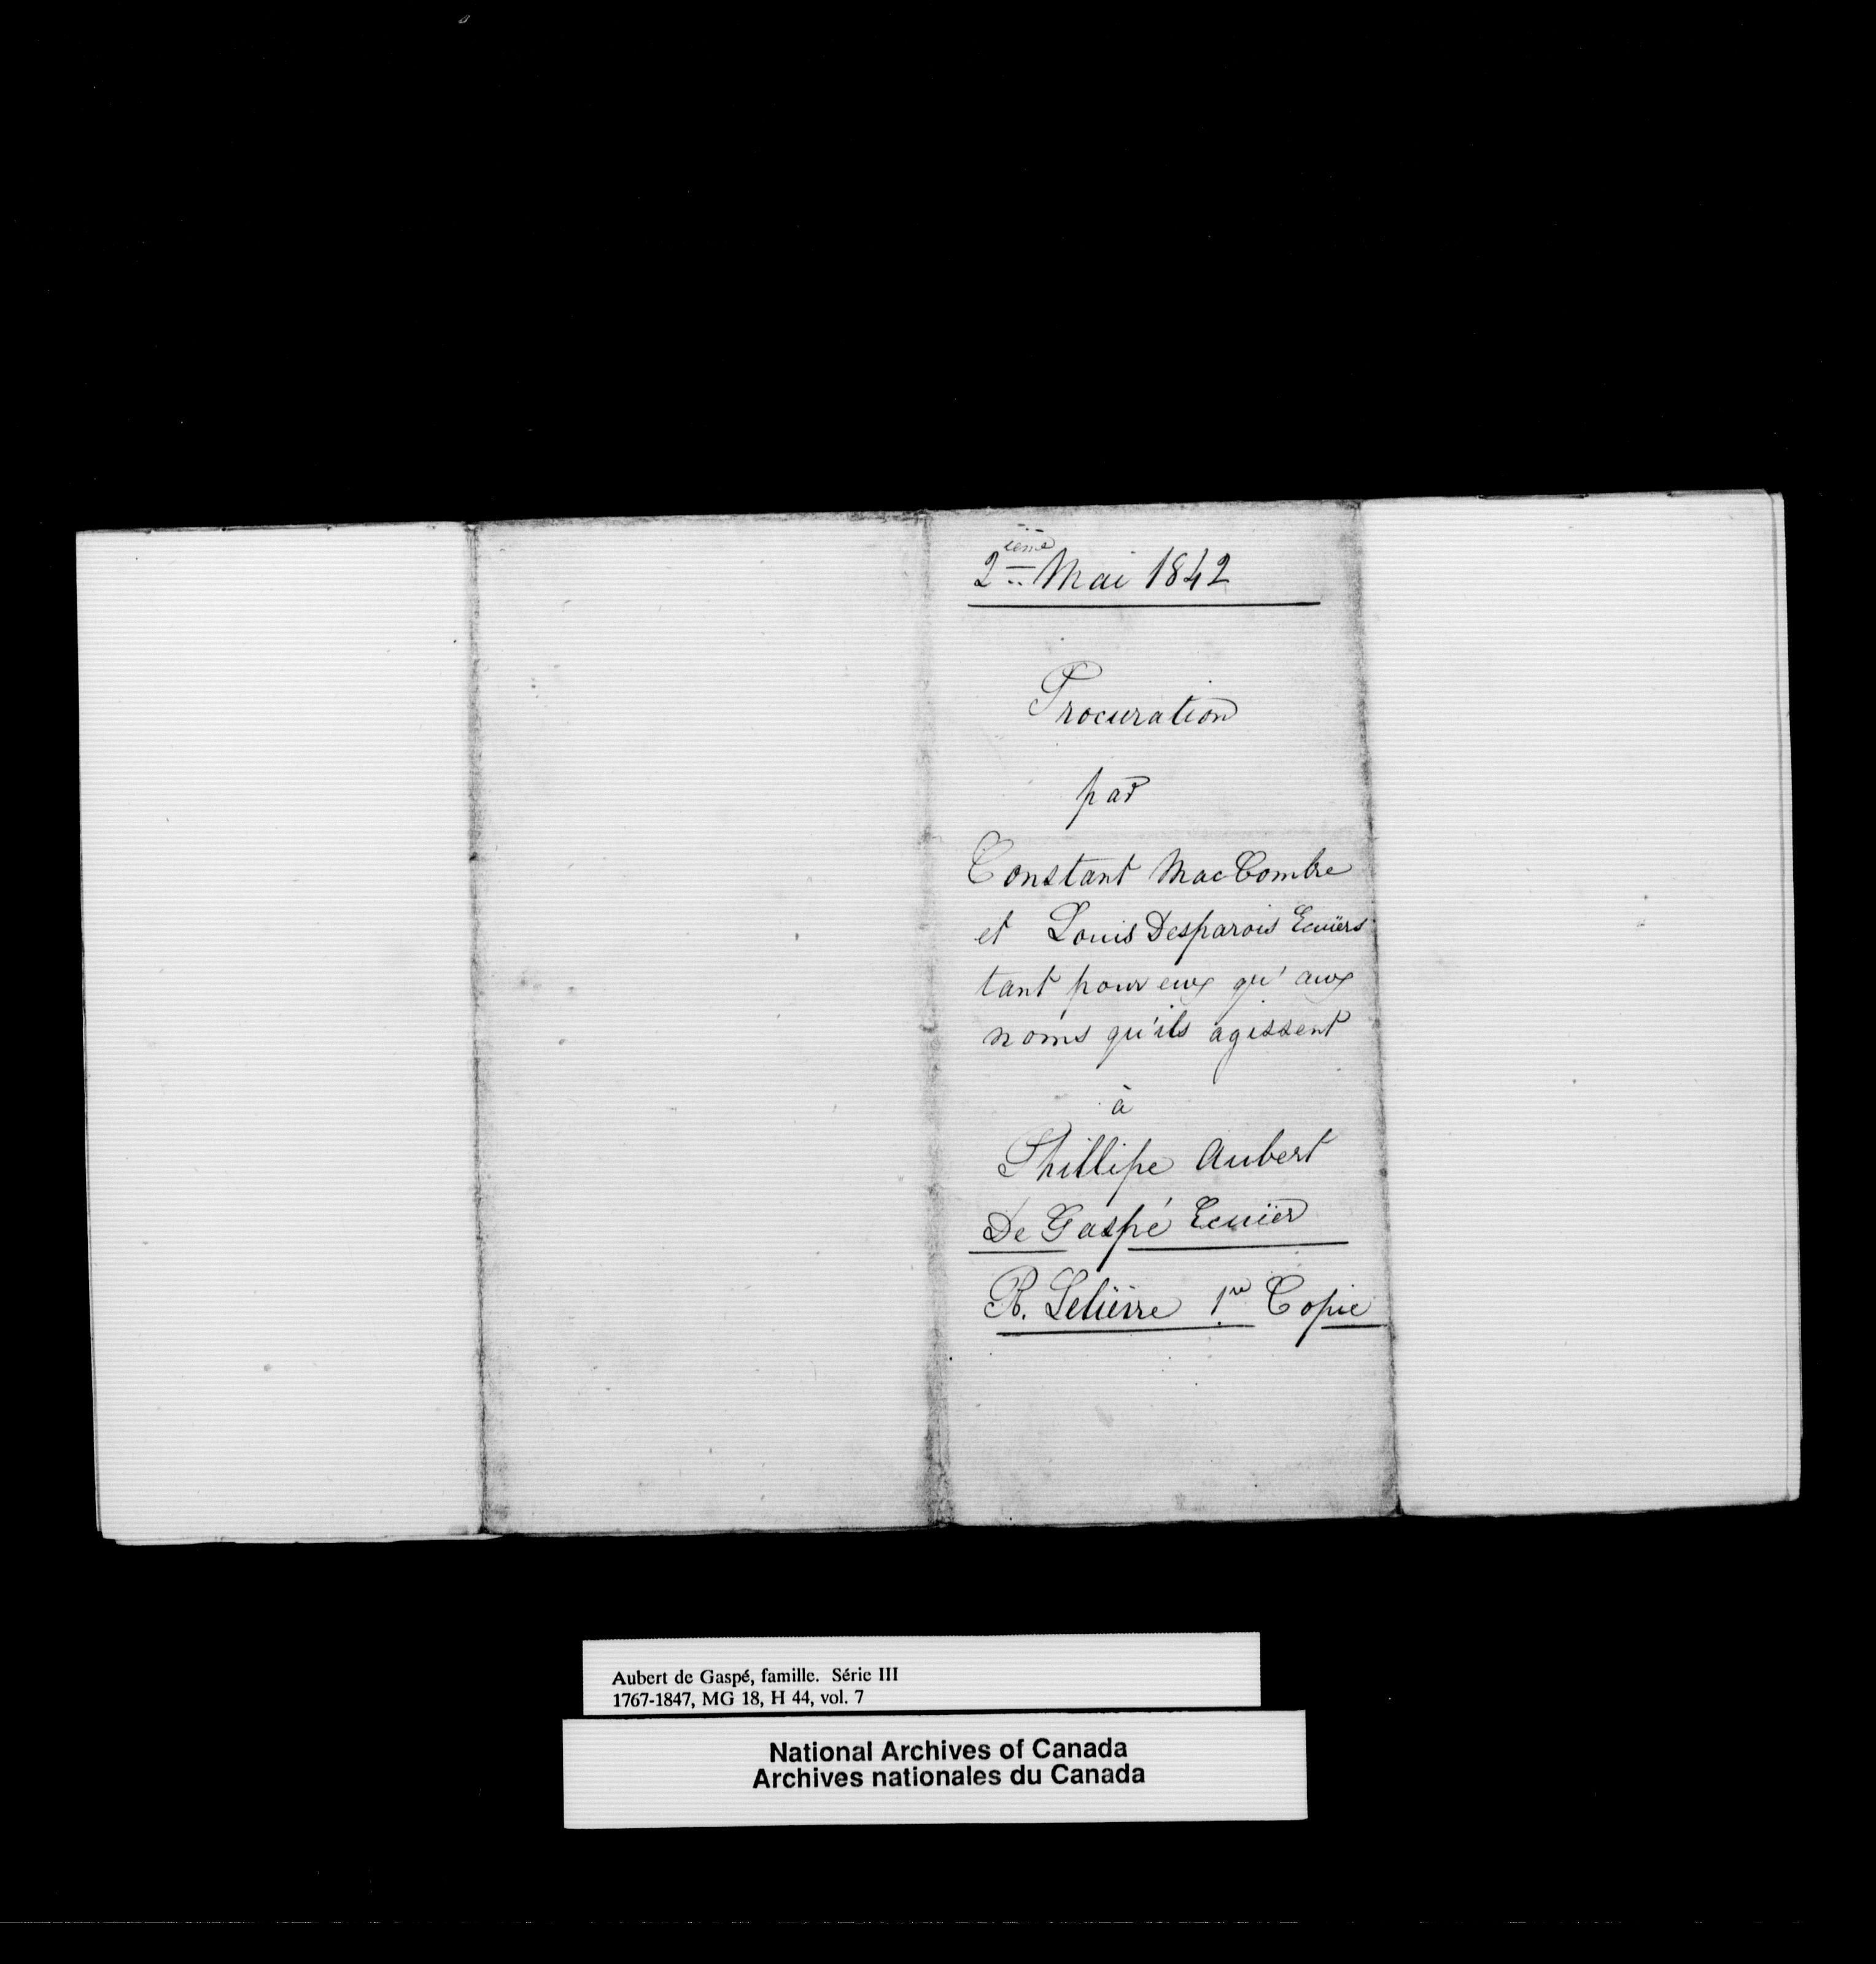 2ième Mai 1842
Procuration
par
Constant MacCombre
et Louis Desparois Ecuïers
tant pour eux qu'aux
noms qu'ils agissent
à
Phillipe Aubert
De Gaspé Ecuïer
R. Lelièvre 1re Copie
Aubert de Gaspé, famille. Série III
1767-1847, MG 18, H 44, vol. 7
National Archives of Canada
Archives nationales du Canada